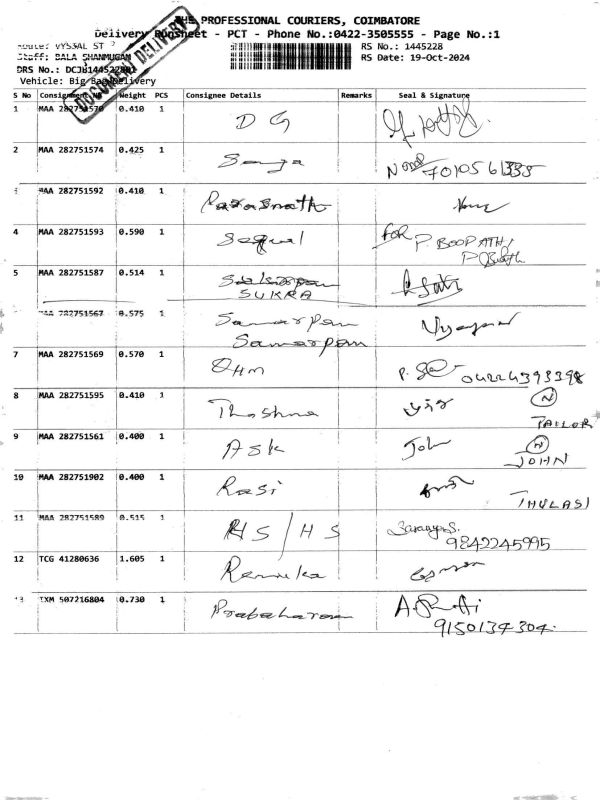 THE PROFESSIONAL COURIERS, COIMBATORE
Delivery Runsheet - PCT - Phone No.:0422-3505555 - Page No.:1
Route: VYSSAL ST
RS No.: 1445228
Staff: BALA SHANMUGAM
RS Date: 19-Oct-2024
DRS No.:
Vehicle: Big Bag Delivery
DOCUMENT DELIVERY
S No Consignment No Weight PCS Consignee Details Remarks Seal & Signature
1 MAA 282751570 0.410 1 D G
2 MAA 282751574 0.425 1
7010561335
MAA 282751592 0.410 1 Parasnath
4 MAA 282751593 0.590 1 Seqwal For P. BOOPATHI
5 MAA 282751587 0.514 1
SUKRA
MAA 282751567 0.575 1 Samarpan
Samarpan
7 MAA 282751569 0.570 1 OHM
04224393398
8 MAA 282751595 0.410 1 Thashna N
TAILOR
9 MAA 282751561 0.400 1 ASK John N
JOHN
10 MAA 282751902 0.400 1 Rasi
THULASI
11 MAA 282751589 0.515 1 HS/HS Saranya.S.
9842245995
12 TCG 41280636 1.605 1 Rennuka
13 IXM 507216804 0.730 1 Prabaharan
9150134304.